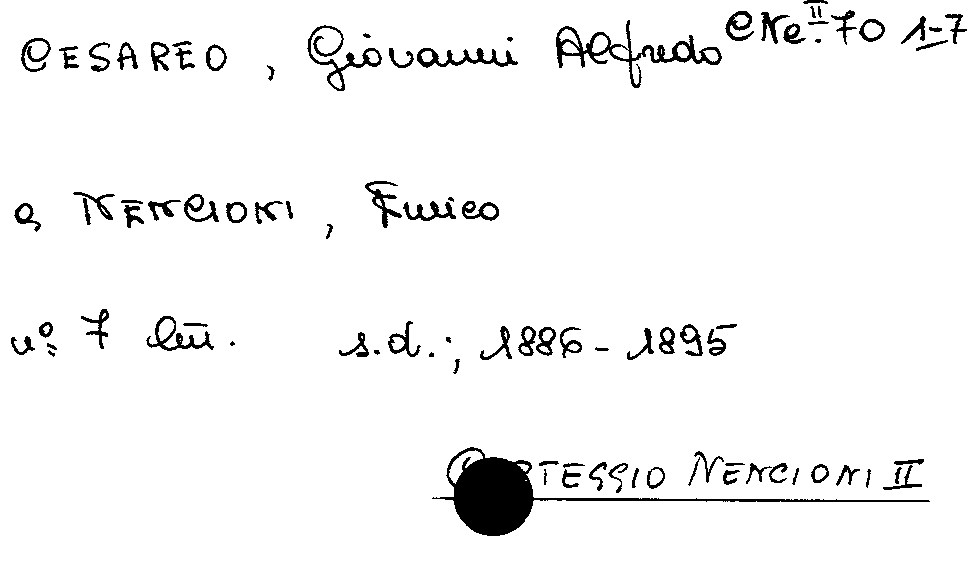 CESAREO, Giovanni Alfredo CNe.II 70 1-7
a NENCIONI, Enrico
nº. 7 lett. s.d.; 1886-1895
TEGGIO NENCIONI II